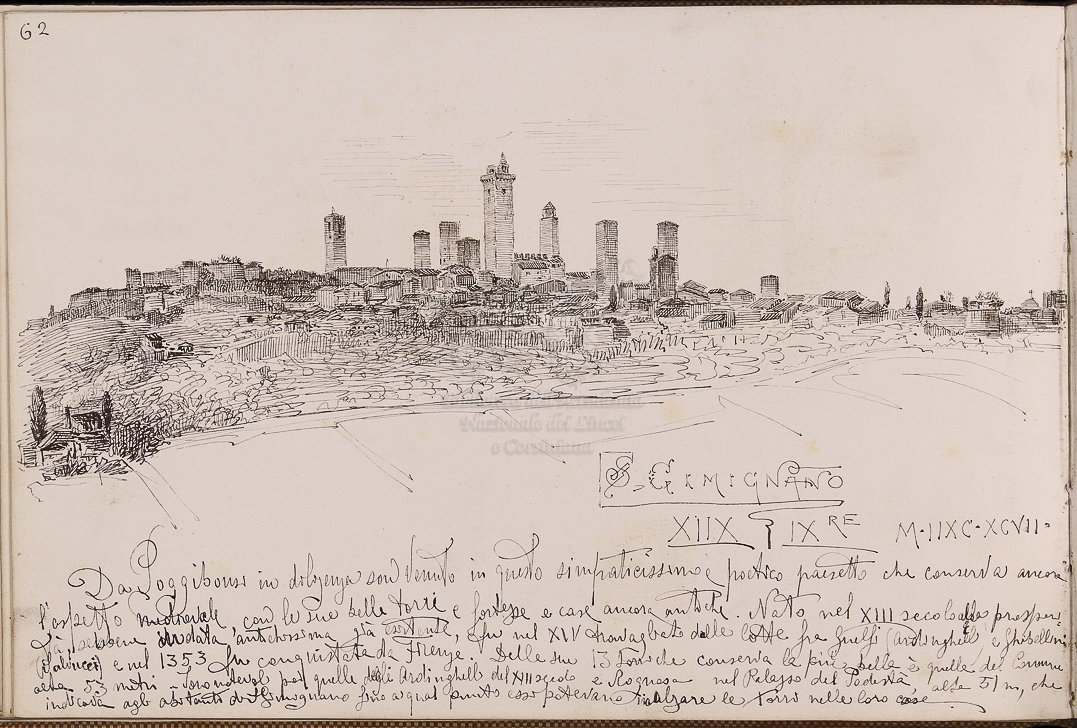 62
S. GIMIGNANO
XIIX IX RE M·IIXC·XCVII·
Da Poggibonsi in diligenza son venuto in questo simpaticissimo e poetico paesetto che conserva ancora
l'aspetto medioevale, con le sue belle torri e fortezze e case ancora antiche. Nato nel XIII secolo alla prosper
ità sebbene di data antichissima già esistente, fu nel XIV travagliato dalle lotte fra Guelfi (Ardinghelli) e Ghibellini
(Salvucci) e nel 1353 fu conquistata da Firenze. Delle sue 13 torri che conserva la più bella è quella del Comune
alta 53 metri - Sono notevoli poi quelle degli Ardinghelli del XIII secolo e Rognosa nel Palazzo del Podestà, alta 51 m, che
indicava agli abitanti di S. Gimignano fino a qual punto essi potevano inalzare le torri nelle loro case.
Nazionale dei Lincei
e Corsiniana